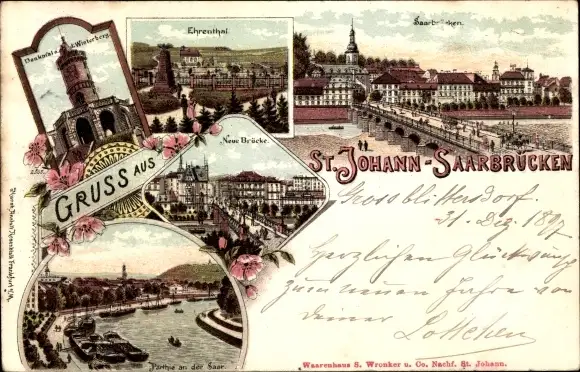 Denkmal a. d. Winterberg.
Ehrenthal.
Saarbrücken.
Neue Brücke.
GRUSS AUS
ST. JOHANN-SAARBRÜCKEN
Grossblittersdorf.
31. Dez. 1897
Herzlichen Glückwunsch
zum neuen Jahre von
deiner
Lottchen
Parthie an der Saar.
Waarenhaus S. Wronker u. Co. Nachf. St. Johann.